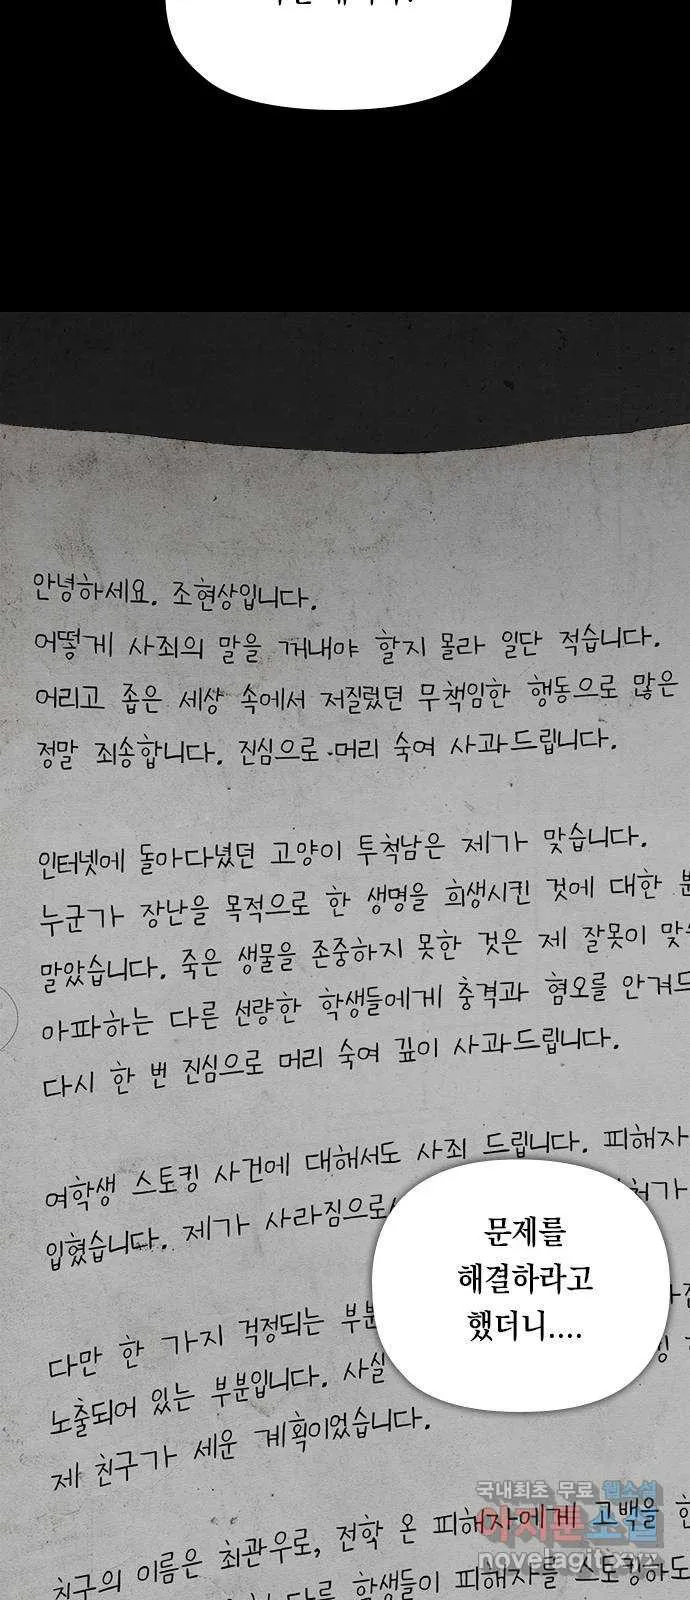 안녕하세요. 조현상입니다.
어떻게 사죄의 말을 꺼내야 할지 몰라 일단 적습니다.
어리고 좁은 세상 속에서 저질렀던 무책임한 행동으로 많은
정말 죄송합니다. 진심으로 머리 숙여 사과드립니다.
인터넷에 돌아다녔던 고양이 투척남은 제가 맞습니다.
누군가 장난을 목적으로 한 생명을 희생시킨 것에 대한 분
말았습니다. 죽은 생물을 존중하지 못한 것은 제 잘못이 맞
아파하는 다른 선량한 학생들에게 충격과 혐오를 안겨드
다시 한 번 진심으로 머리 숙여 깊이 사과드립니다.
여학생 스토킹 사건에 대해서도 사죄 드립니다. 피해자
입혔습니다. 제가 사라짐으로
문제를
해결하라고
했더니....
다만 한 가지 걱정되는 부분
노출되어 있는 부분입니다. 사실
제 친구가 세운 계획이었습니다.
친구의 이름은 최관우로, 전학 온 피해자에게 고백을 한
다른 학생들이 피해자를 스토킹하도
국내최초 무료 웹소설
아지툰 소설
novelagit